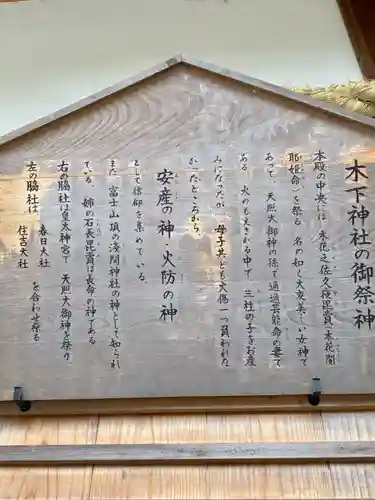 木下神社の御祭神
本殿の中央には、木花之佐久夜毘賣(木花開
耶姫命)を祭る 名の如く大変美しい女神で
あって 天照大御神の孫で邇邇芸能命の妻で
ある 火のもえさかる中で 三柱の子をお産
みになったが 母子共にも火傷一つ負われな
かったところから、
安産の神・火防の神
として信仰を集めている。
また 富士山頂の浅間神社の神として知られ
ている。姉の石長毘賣は長命の神である
右の脇社は皇太神宮で 天照大御神を祭り
左の脇社は、春日大社
住吉大社
を合わせ祭る